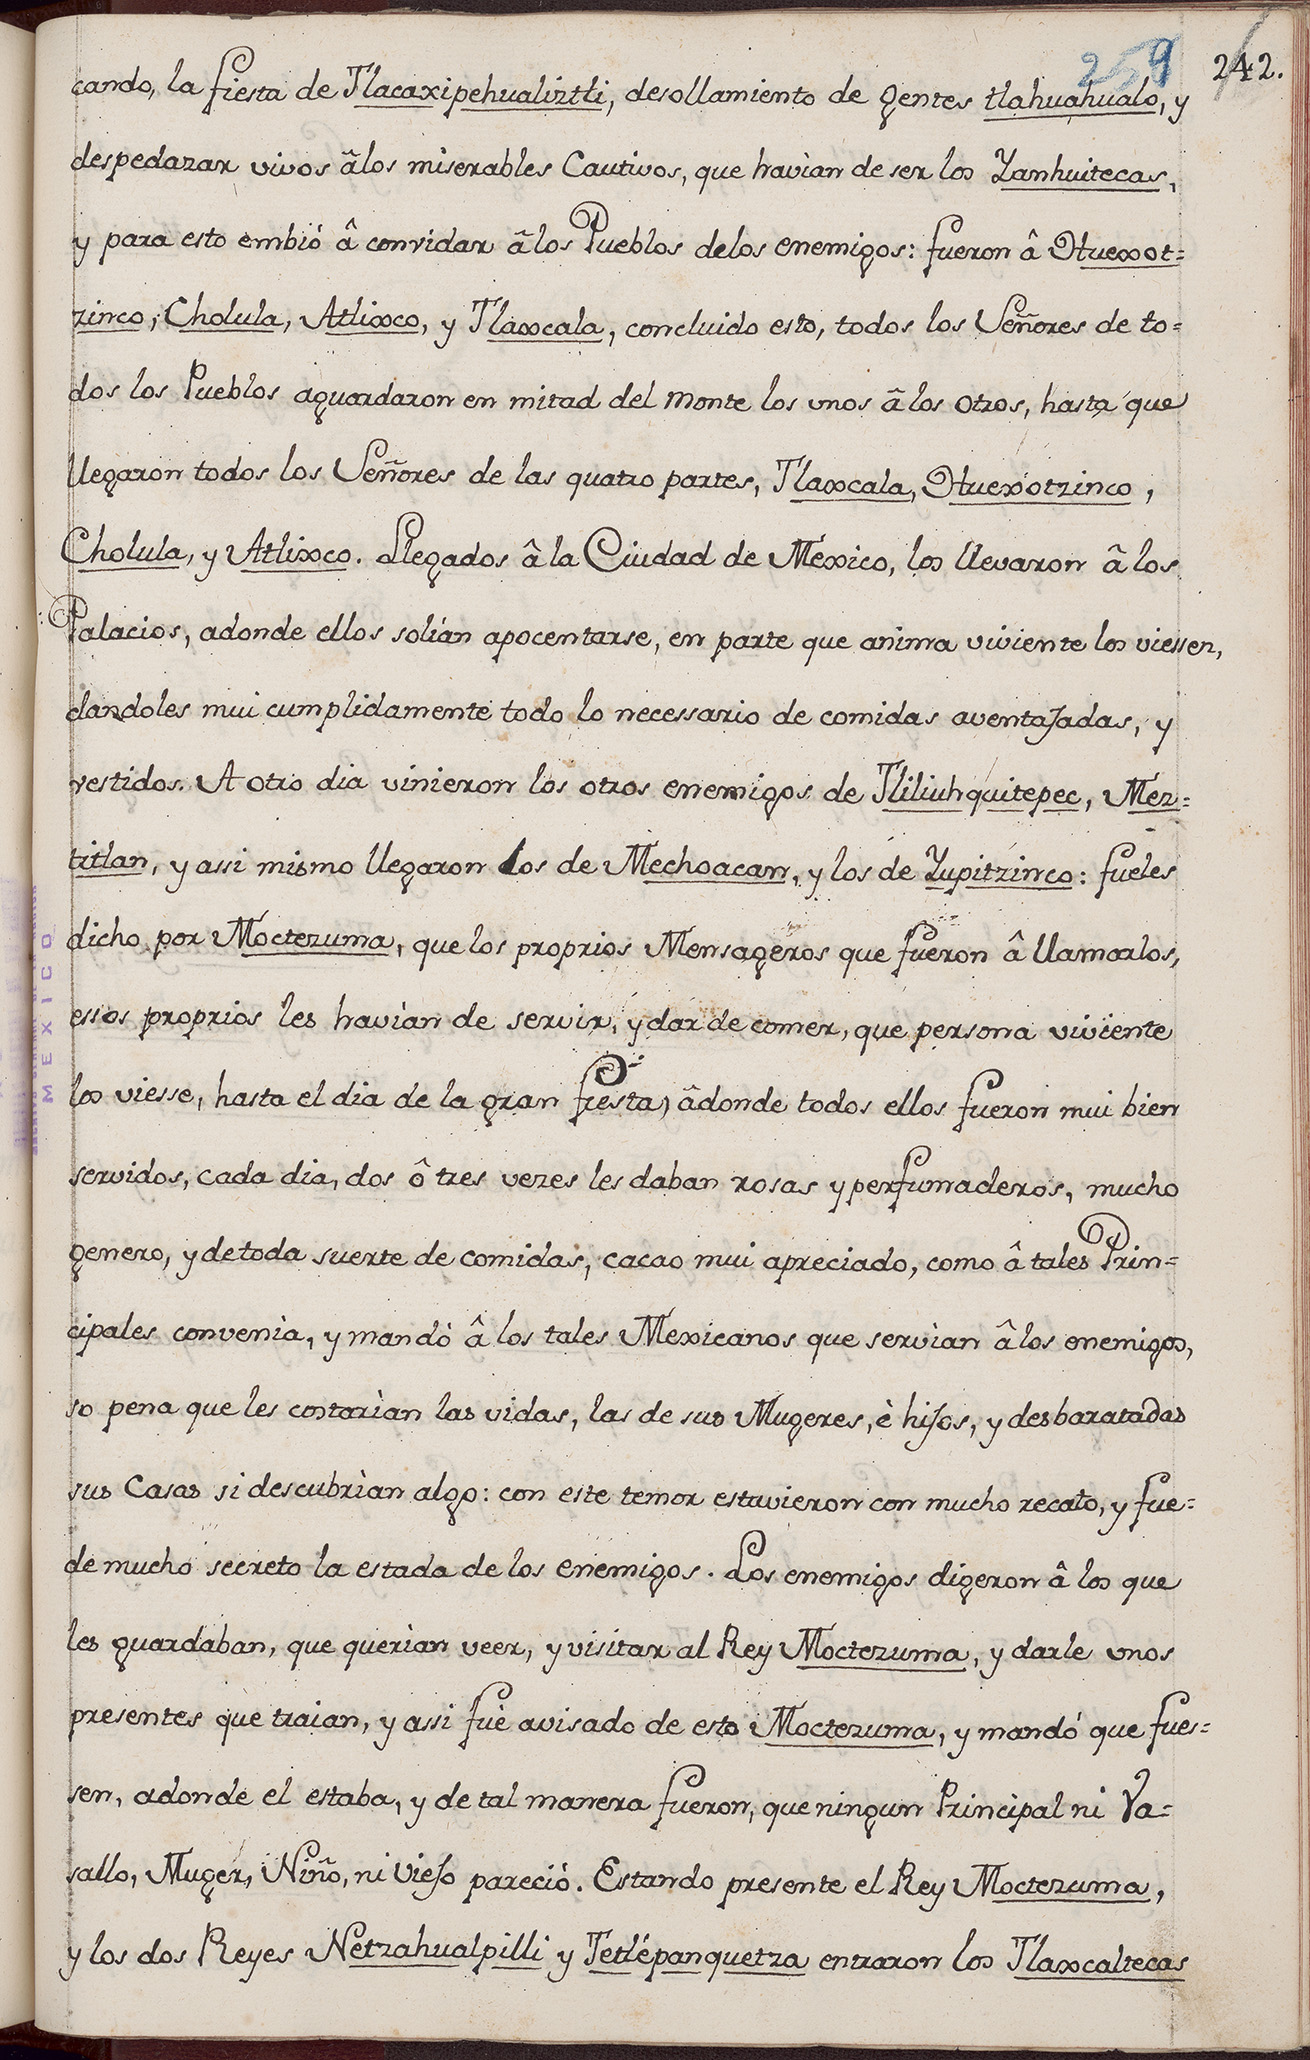 259 242.
cando, la fiesta de Tlacaxipehualiztli, desollamiento de gentes tlahuahualo, y
despedazar vivos âlos miserables Cautivos, que havian de ser los Yanhuitecas,
y para esto embió â convidar âlos Pueblos delos enemigos: fueron â Huexot=
zinco, Cholula, Atlixco, y Tlaxcala, concluido esto, todos los Señores de to=
dos los Pueblos aguardaron en mitad del monte los unos âlos otros, hasta que
llegaron todos los Señores de las quatro partes, Tlaxcala, Huexotzinco,
Cholula, y Atlixco. Llegados âla Ciudad de México, los llevaron âlos
Palacios, adonde ellos solian apocentarse, en parte que anima viviente los viessen,
dandoles mui cumplidamente todo lo necessario de comidas aventajadas, y
vestidos. A otro dia vinieron los otros enemigos de Tliliuhquitepec, Mez=
titlan, y assi mismo llegaron los de Mechoacan, y los de Yupitzinco: fueles
dicho por Moctezuma, que los proprios Mensageros que fueron â llamarlos,
essos proprios les havian de servir, y dar de comer, que persona viviente
los viesse, hasta el dia de la gran fiesta) âdonde todos ellos fueron mui bien
servidos, cada dia, dos ô tres vezes les daban rosas y perfumaderos, mucho
genero, y de toda suerte de comidas, cacao mui apreciado, como â tales Prin=
cipales convenia, y mandó âlos tales Mexicanos que servian âlos enemigos,
so pena que les costarian las vidas, las de sus Mugeres, è hijos, y desbaratadas
sus Casas si descubrian algo: con este temor estuvieron con mucho recato, y fue=
de mucho secreto la estada de los enemigos. Los enemigos digeron âlos que
les guardaban, que querian veer, y visitar al Rey Moctezuma, y darle unos
presentes que traian, y assi fuè avisado de esto Moctezuma, y mandó que fues=
sen, adonde el estaba, y de tal manera fueron, que ningun Principal ni Va=
sallo, Muger, Niño, ni Viejo pareció. Estando presente el Rey Moctezuma,
y los dos Reyes Netzahualpilli y Tetlépanquetza entraron los Tlaxcaltecas
MEXICO